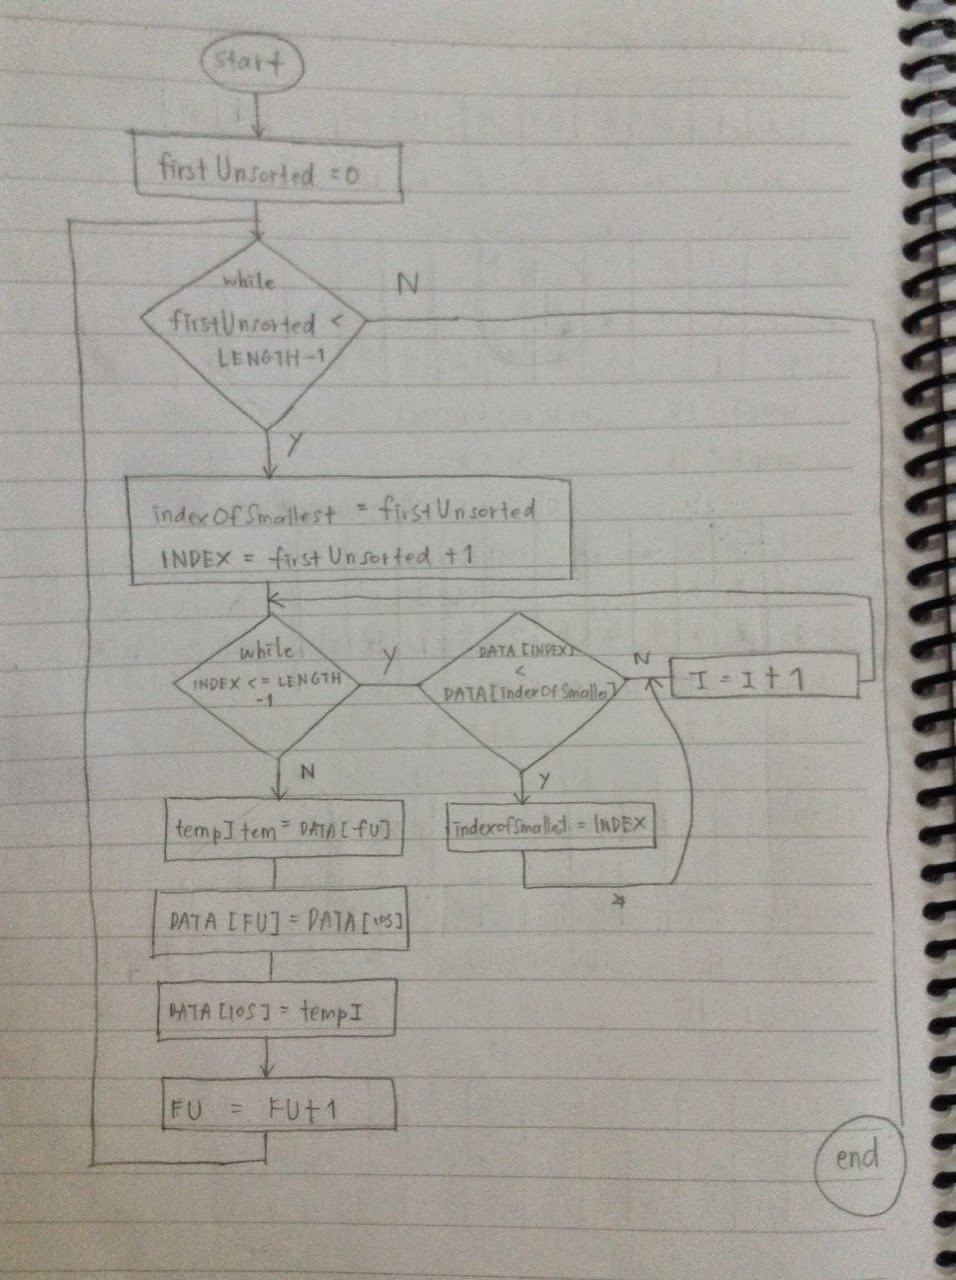 start
firstUnsorted = 0
while
firstUnsorted <
LENGTH-1
N
Y
indexOfSmallest = firstUnsorted
INDEX = firstUnsorted + 1
while
INDEX <= LENGTH
-1
Y
DATA[INDEX]
<
DATA[indexOfSmalle]
N
I = I + 1
N
Y
tempItem = DATA[fU]
indexofSmallet = INDEX
DATA [FU] = DATA[ios]
DATA [IOS] = tempI
FU = FU+1
end